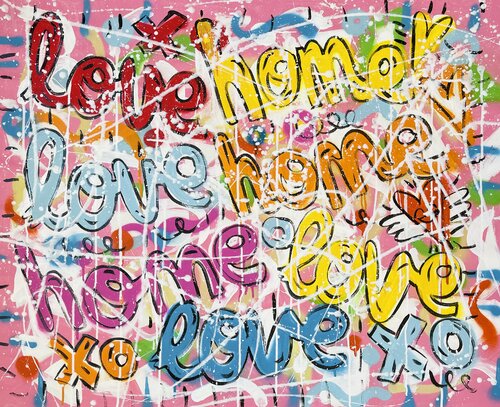 love home
love home
home love
xo love xo